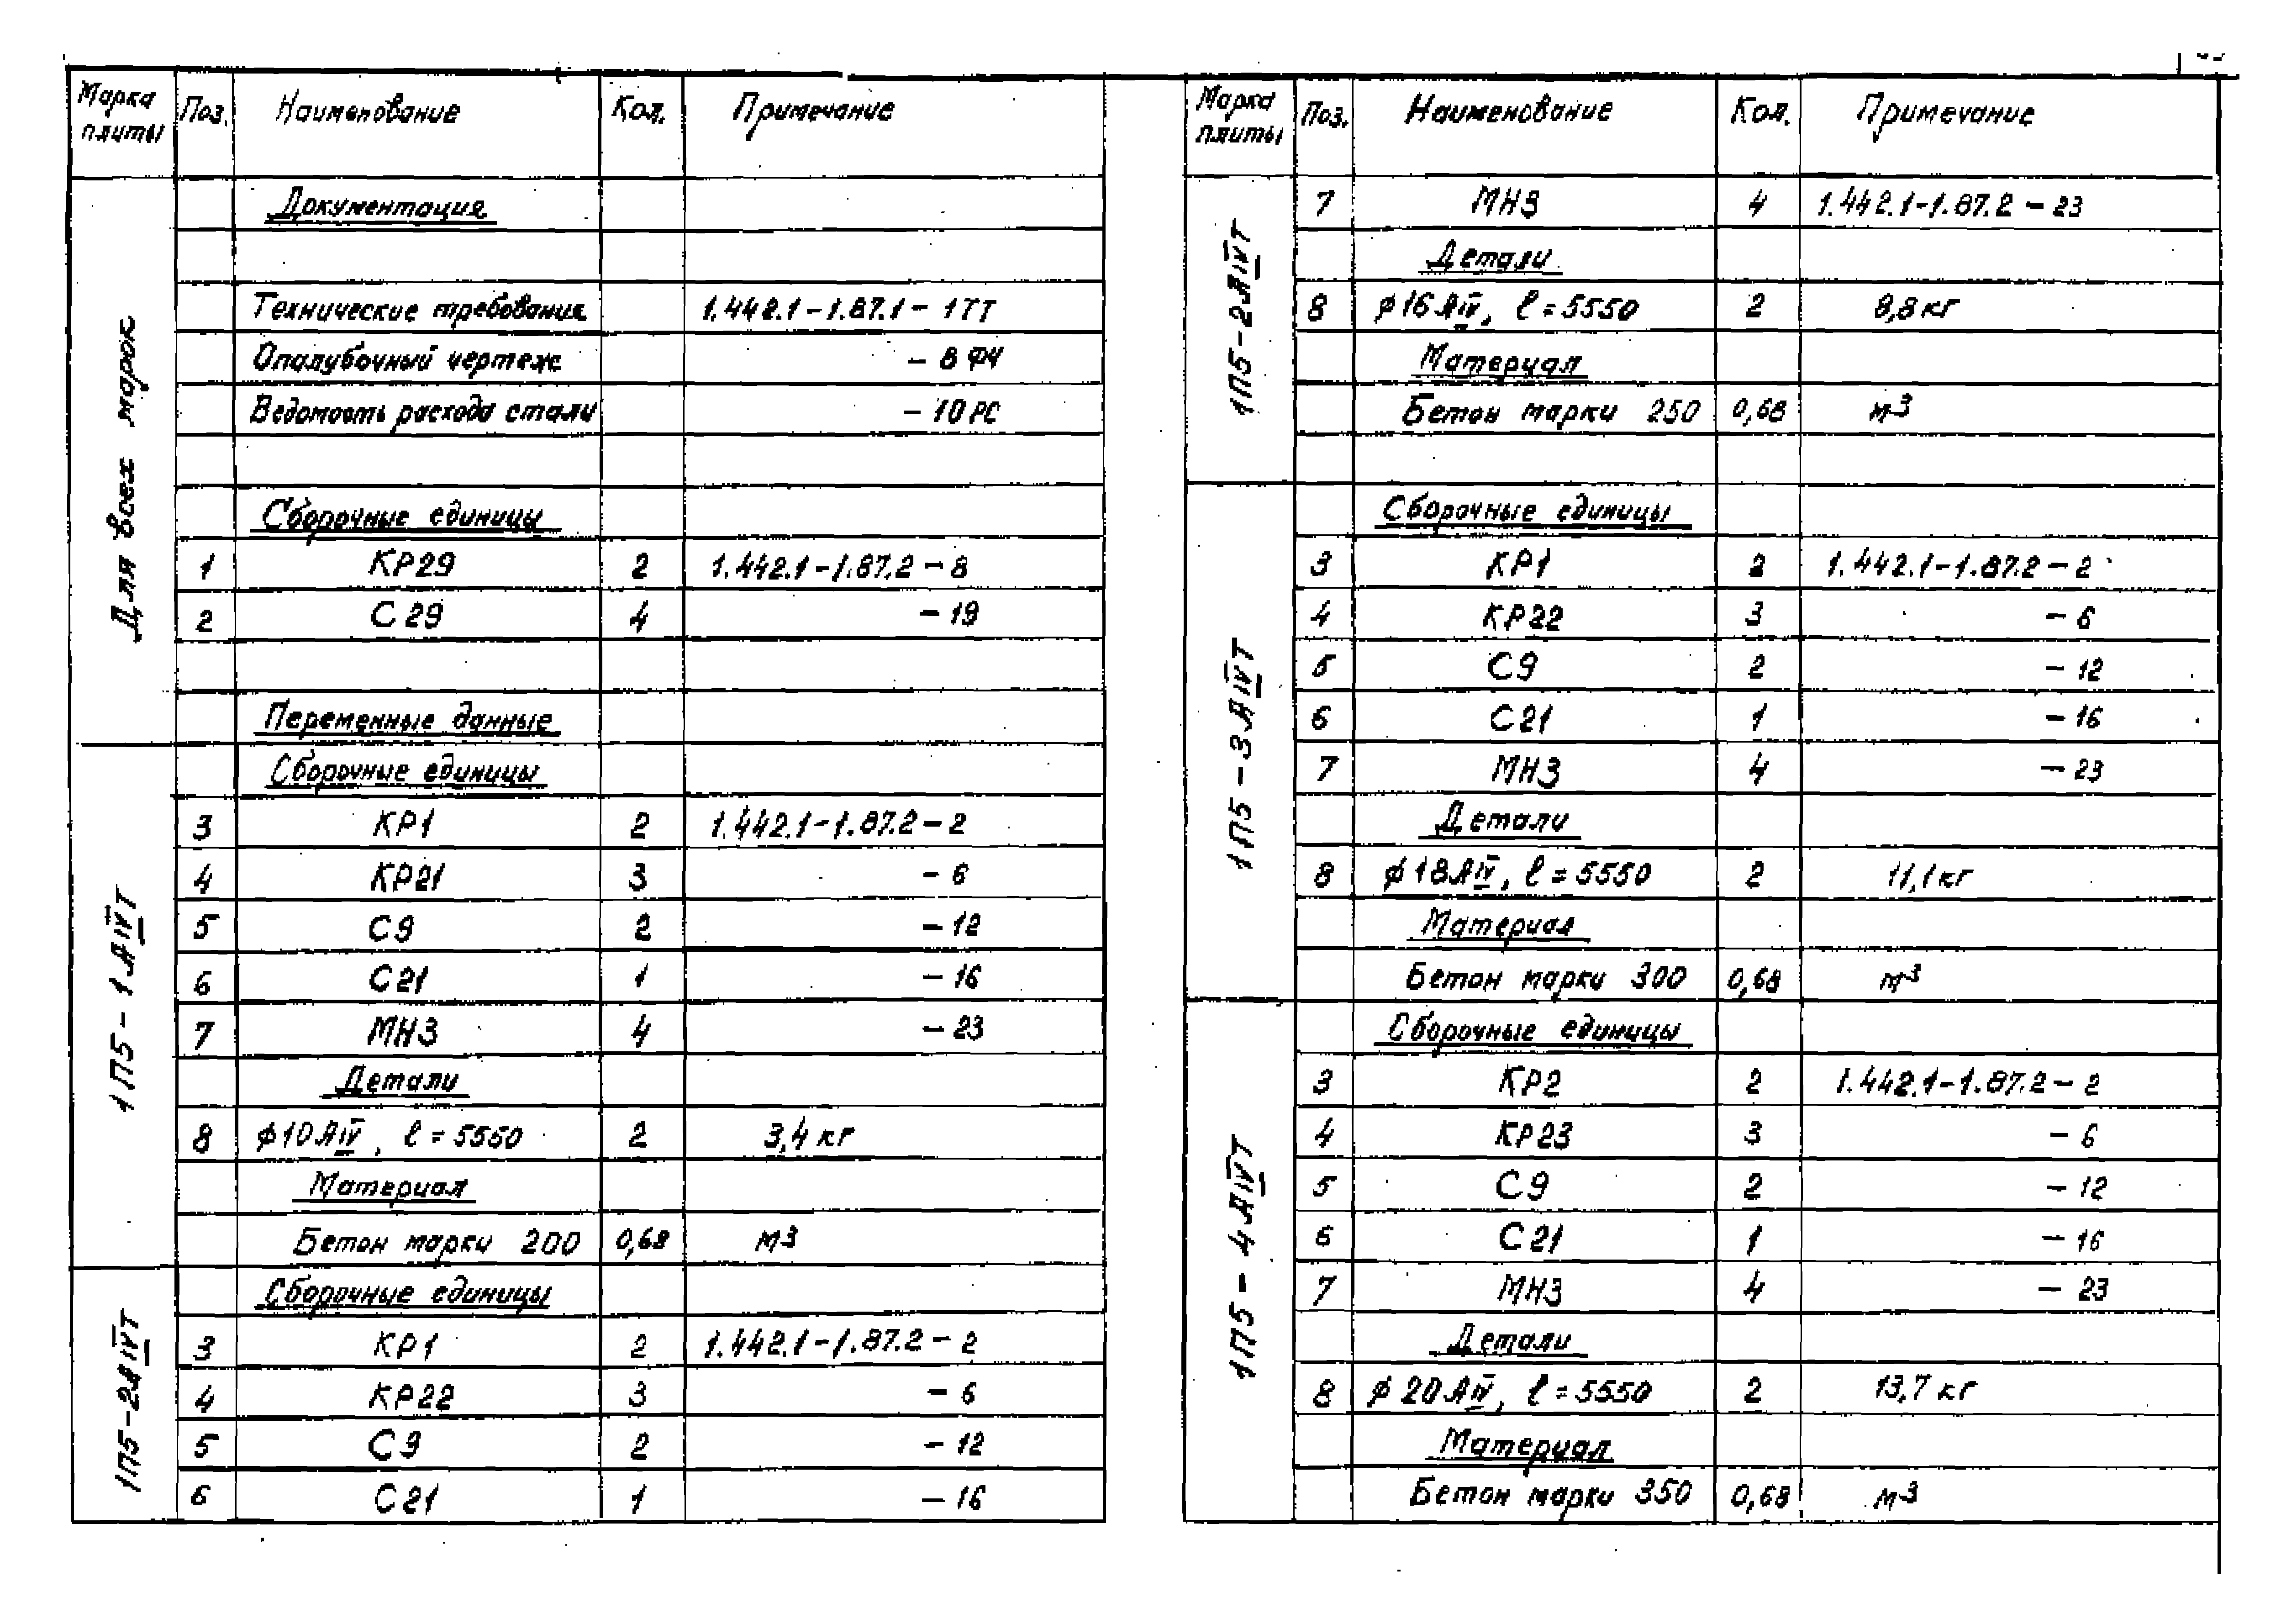 Марка плиты Поз. Наименование Кол. Примечание
Для всех марок
Документация
Технические требования 1.442.1-1.87.1 - 1ТТ
Опалубочный чертеж - 8 ФЧ
Ведомость расхода стали - 10 РС
Сборочные единицы
1 КР29 2 1.442.1-1.87.2 - 8
2 С29 4 - 19
Переменные данные
1П5-1АIVТ
Сборочные единицы
3 КР1 2 1.442.1-1.87.2 - 2
4 КР21 3 - 6
5 С9 2 - 12
6 С21 1 - 16
7 МН3 4 - 23
Детали
8 ϕ10АIV, ℓ=5550 2 3,4 кг
Материал
Бетон марки 200 0,68 м3
1П5-2АIVТ
Сборочные единицы
3 КР1 2 1.442.1-1.87.2 - 2
4 КР22 3 - 6
5 С9 2 - 12
6 С21 1 - 16
Марка плиты Поз. Наименование Кол. Примечание
1П5-2АIVТ
7 МН3 4 1.442.1-1.87.2 - 23
Детали
8 ϕ16АIV, ℓ=5550 2 8,8 кг
Материал
Бетон марки 250 0,68 м3
1П5-3АIVТ
Сборочные единицы
3 КР1 2 1.442.1-1.87.2 - 2
4 КР22 3 - 6
5 С9 2 - 12
6 С21 1 - 16
7 МН3 4 - 23
Детали
8 ϕ18АIV, ℓ=5550 2 11,1 кг
Материал
Бетон марки 300 0,68 м3
1П5-4АIVТ
Сборочные единицы
3 КР2 2 1.442.1-1.87.2 - 2
4 КР23 3 - 6
5 С9 2 - 12
6 С21 1 - 16
7 МН3 4 - 23
Детали
8 ϕ20АIV, ℓ=5550 2 13,7 кг
Материал
Бетон марки 350 0,68 м3